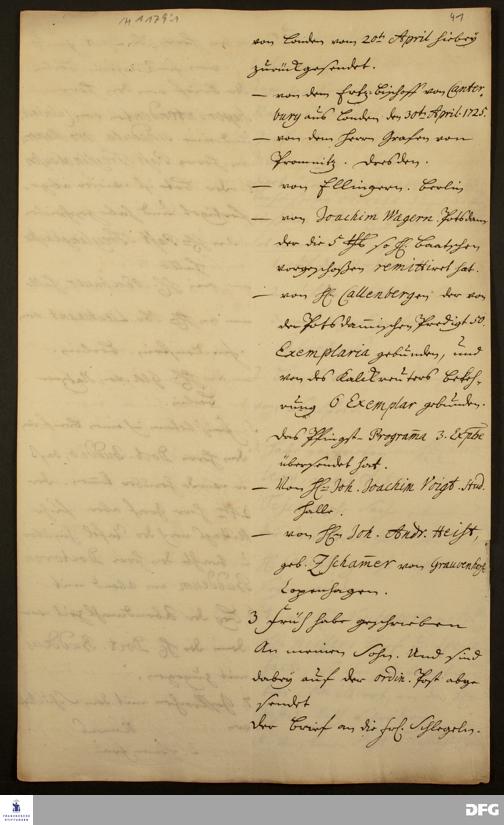 H 1 179:1
41
von London vom 20t April hiebey
zurückgesendet.
— von dem Ertz-Bischoff von Canter-
bury aus London den 30t April 1725.
— von dem Herrn Grafen von
Promnitz. Dresden.
— von Ellingern. Berlin
— von Joachim Wagern. Potsdam
der die 5 so H. Baatschen
vorgeschoßen remittiret hat.
— von H. Callenbergen der von
der Potsdamischen Predigt 50.
Exemplaria gebunden, und
von des Kalckreuters Bekeh-
rung 6 Exemplar gebunden.
das Pfingst-Programa 3. Expl
übersendet hat.
— Von H. Joh. Joachim Voigt. Stud.
Halle.
— von H. Joh. Andr. Heist,
geb. Zschamer von
Copenhagen.
3 Früh habe geschrieben
An meinen Sohn. Und sind
dabey auf der ordin. Post abge
sendet
der Brief an die Frl. Schlegeln.
FRANCKESCHE
STIFTUNGEN
DFG